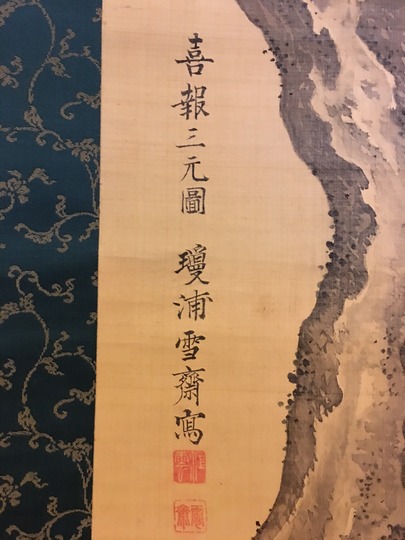 喜報三元圖 瓊浦雪齋寫